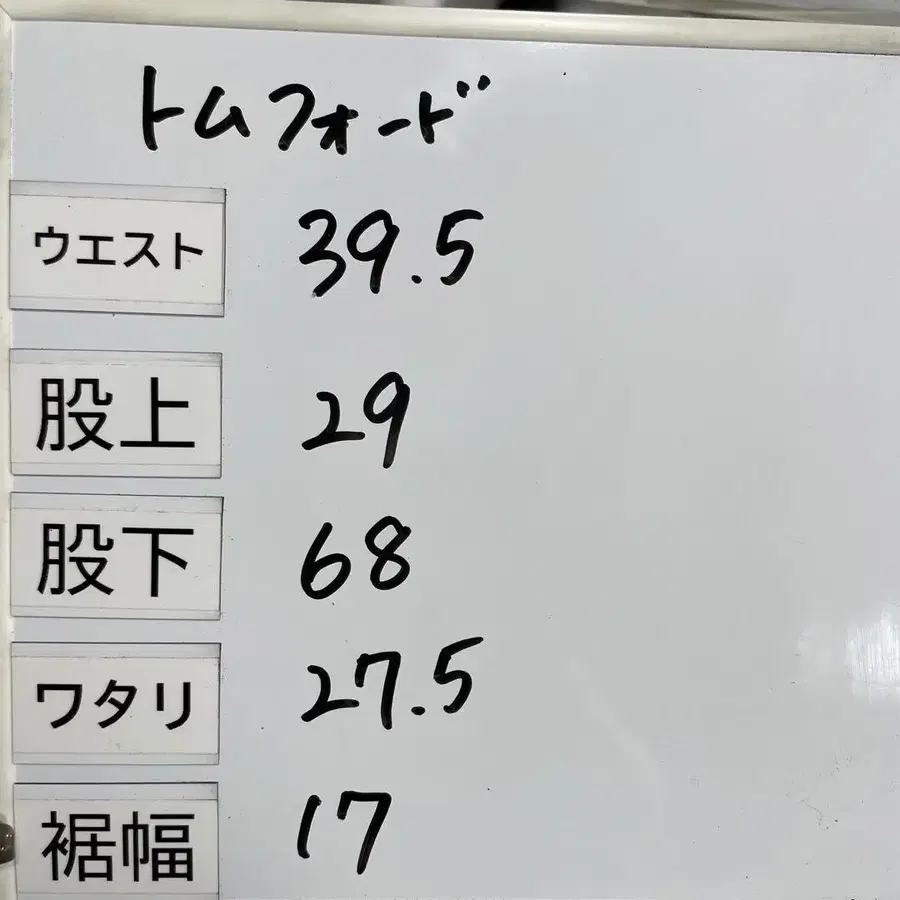 トムフォード
ウエスト 39.5
股上 29
股下 68
ワタリ 27.5
裾幅 17